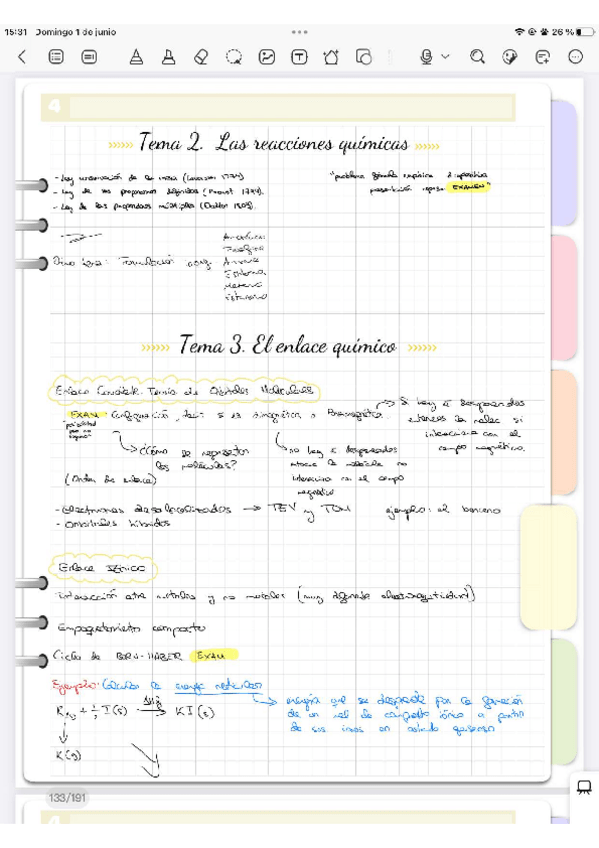 15:31 Domingo 1 de junio
26 %
4
Tema 2. Las reacciones químicas
- Ley conservación de la masa (Lavoisier 1774)
- Ley de las proporciones definidas (Proust 1799).
- Ley de las proporciones múltiples (Dalton 1803).
"problema fórmula empírica
EXAMEN"
Formulación
Tema 3. El enlace químico
Enlace Covalente. Teoría de Orbitales Moleculares
EXAM Configuración, decir si es diamagnética o Paramagnética
Si hay e⁻ desapareados
entonces la molec sí
interacciona con el
campo magnético.
¿Cómo se representan
las moléculas?
(Orden de enlace)
no hay e⁻ desapareados
entonces la molécula no
interacciona con el campo
magnético
- electrones deslocalizados → TEV y TOM ejemplo: el benceno
- orbitales híbridos
Enlace Iónico
Interacción entre metales y no metales (muy diferente electronegatividad)
Empaquetamiento compacto
Ciclo de BORN-HABER EXAM
Ejemplo: Calcular la energía reticular
energía que se desprende por la formación
de un mol de compuesto iónico a partir
de sus iones en estado gaseoso
I(s) → KI(s)
K(g)
133/191